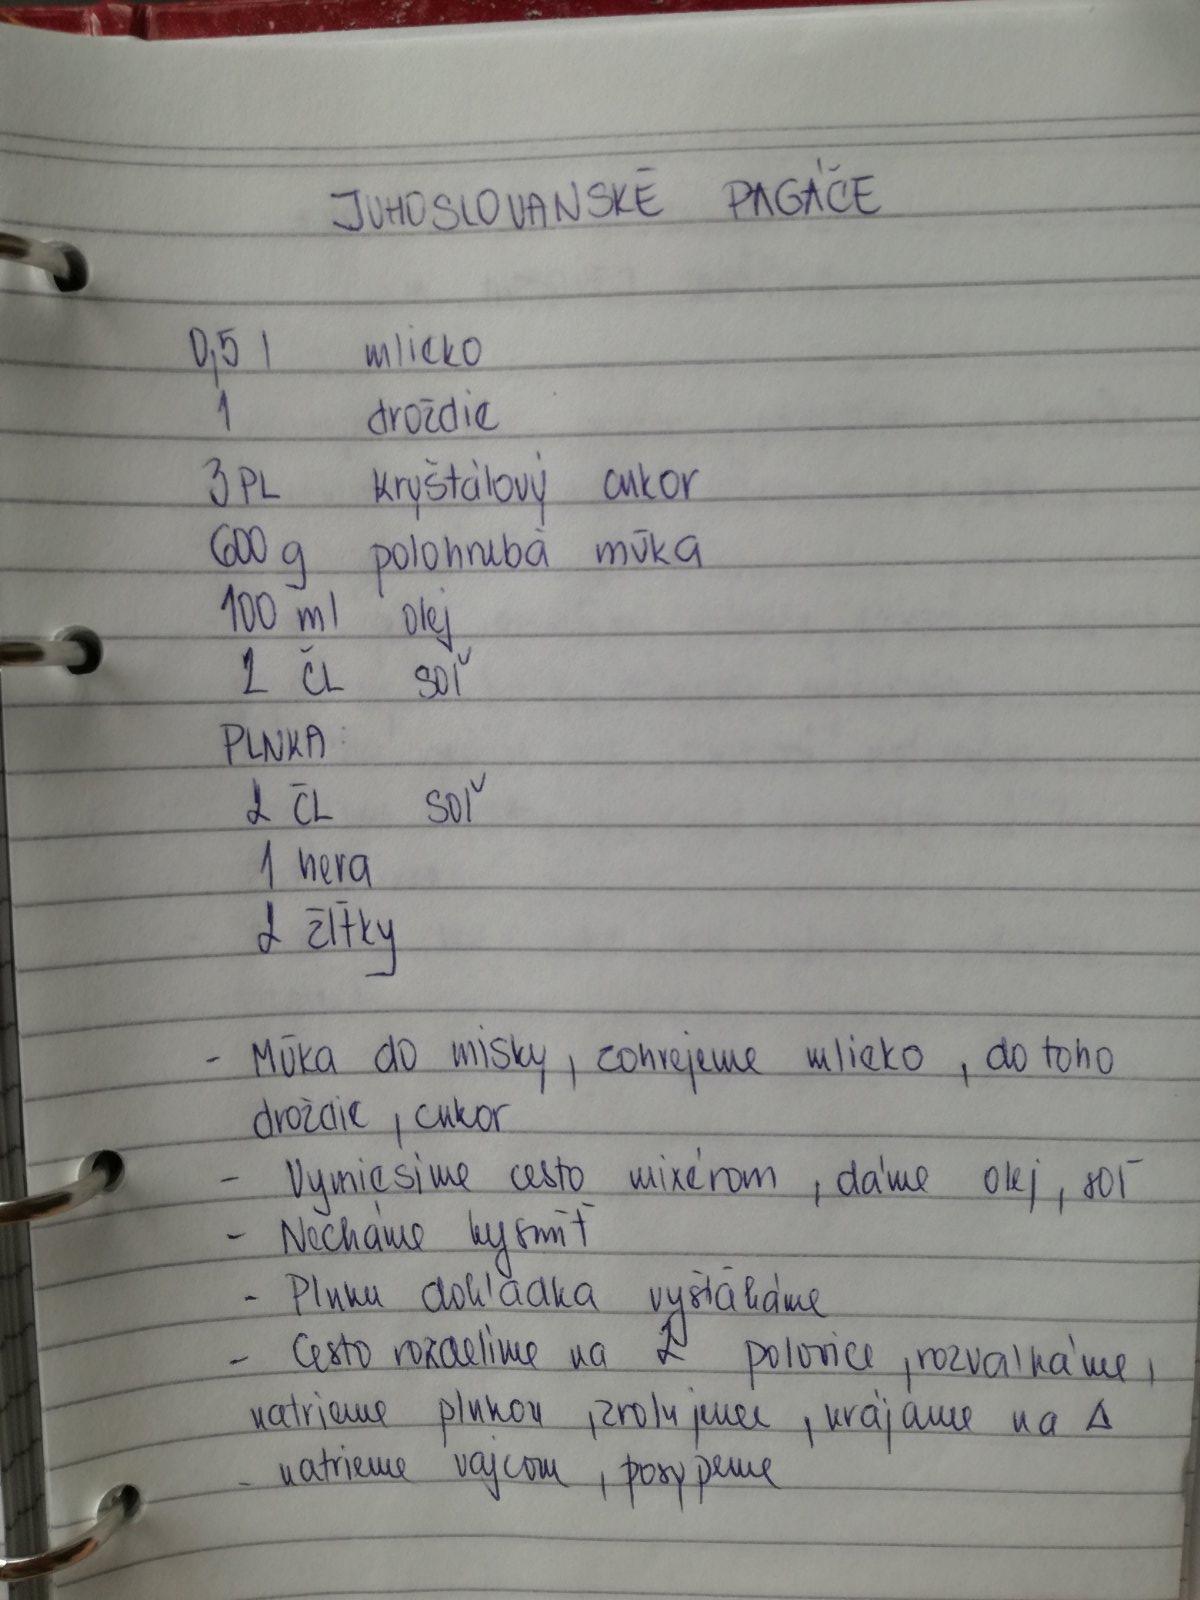 JUHOSLOVANSKÉ PAGÁČE
0,5 l mlieko
1 droždie
3 PL kryštálový cukor
600 g polohrubá múka
100 ml olej
1 ČL soľ
PLNKA:
2 ČL soľ
1 hera
2 žĺtky
- Múka do misky, zohrejeme mlieko, do toho
droždie, cukor
- Vymiesime cesto mixérom, dáme olej, soľ
- Necháme kysnúť
- Plnku dohladka vyšľaháme
- Cesto rozdelíme na 2 polovice, rozvalkáme,
natrieme plnkou, zrolujeme, krájame na Δ
- natrieme vajcom, posypeme